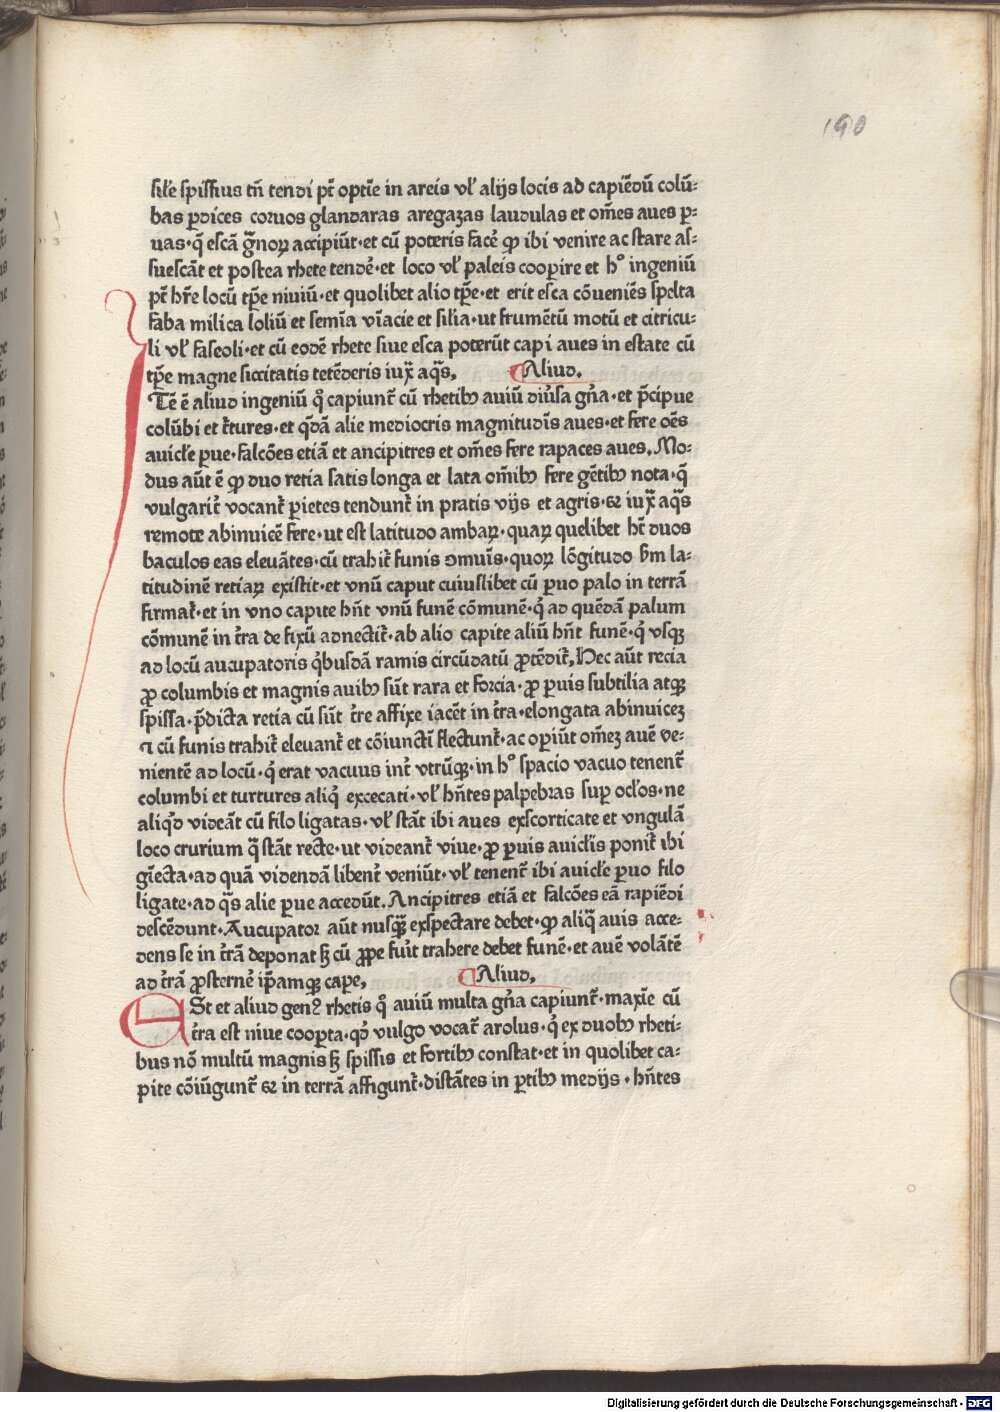 190
sił'e spissius tn̄ tendi pt̄ optīe in areis vł alijs locis ad capiēdū colū-
bas p̱dices coruos glandaras aregazas laudulas et om̄es aues p̱-
uas·q̄ escā g̃noꝝ accipiūt·et cū poteris facē ꝙ ibi venire ac stare as-
suescāt et postea rhete tendē·et loco vł paleis coop̱ire et hᵒ ingeniū
pt̄ hr̄e locū tp̄e niuiū·et quolibet alio tp̄e·et erit esca cōueniēs spelta
faba milica loliū et semīa vīacie et silīa·ut frumētū motū et citricu-
li vł faseoli·et cū eodē rhete siue esca poterūt capi aues in estate cū
tp̄e magne siccitatis tetēderis iux̄ aq̄s. Aliud.
Tē ē aliud ingeniū qͦ capiunt̄ cū rhetibꝰ auiū diũsa gña·et p̄cipue
colūbi et t̄tures·et q̄dā alie mediocris magnitudīs aues·et fere oēs
auicłe p̱ue·falcōes etiā et ancipitres et om̄es fere rapaces aues. Mo-
dus aūt ē ꝙ duo retia satis longa et lata om̄ibꝰ fere gētibꝰ nota·q̄
vulgarit̄ vocant̄ p̱ietes tendunt̄ in pratis vijs et agris·⁊ iux̄ aq̄s
remote abinuicē fere·ut est latitudo ambaꝝ·quaꝝ quelibet ht̄ duos
baculos eas eleuātes·cū trahit̄ funis ꝯmuīs·quoꝝ lōgitudo ẜm la-
titudinē retiaꝝ existit·et vnū caput cuiuslibet cū p̱uo palo in terrā
firmat̄·et in vno capite hn̄t vnū funē cōmunē·qͥ ad quēdā palum
cōmunē in t̄ra de fixū adnectit̄·ab alio capite aliū hn̄t funē·qͥ vsqꝫ
ad locū aucupatoris qͥbusdā ramis circūdatū ꝓtēdit̄. Hec aūt recia
ꝓ columbis et magnis auibꝰ sūt rara et forcia·ꝓ p̱uis subtilia atqꝫ
spissa·p̄dicta retia cū sūt t̄re affixe iacēt in t̄ra·elongata abinuiceꝫ
⁊ cū funis trahit̄ eleuant̄ et cōiunctī flectunt̄·ac op̱iūt om̄eꝫ auē ve-
nientē ad locū·qͥ erat vacuus int̄ vtrūqꝫ·in hᵒ spacio vacuo tenent̄
columbi et turtures aliqͥ excecati·vł hn̄tes palpebras sup̱ ocłos·ne
aliqͥd videāt cū filo ligatas·vł stāt ibi aues exscorticate et vngulā
loco crurium q̄ stāt recte·ut videant̄ viue·ꝓ p̱uis auicłis ponit̄ ibi
gīecta·ad quā videndā libent̄ veniūt·vł tenent̄ ibi auicłe p̱uo filo
ligate·ad q̄s alie p̱ue accedūt. Ancipitres etiā et falcōes eā rapiēdi
descēdunt·Aucupator aūt nusq̄ꝫ exspectare debet·ꝙ aliq̄ auis acce-
dens se in t̄rā deponat sꝫ cū ꝓpe fu̇it trahere debet funē·et auē volātē
ad t̄rā ꝓsternē ip̄amqꝫ cape. Aliud.
ESt et aliud gen⁹ rhetis qͦ auiū multa gña capiunt̄·maxīe cū
t̄ra est niue coop̱ta·qͦd vulgo vocat̄ arolus·qͥ ex duobꝰ rheti-
bus nō multū magnis sꝫ spissis et fortibꝰ constat·et in quolibet ca-
pite cōiūgunt̄ ⁊ in terrā affigunt̄·distātes in p̱tibꝰ medijs·hn̄tes
Digitalisierung gefördert durch die Deutsche Forschungsgemeinschaft - DFG